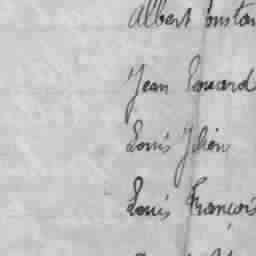 Albert Constan
Jean Edouard
Louis Julien
Louis François